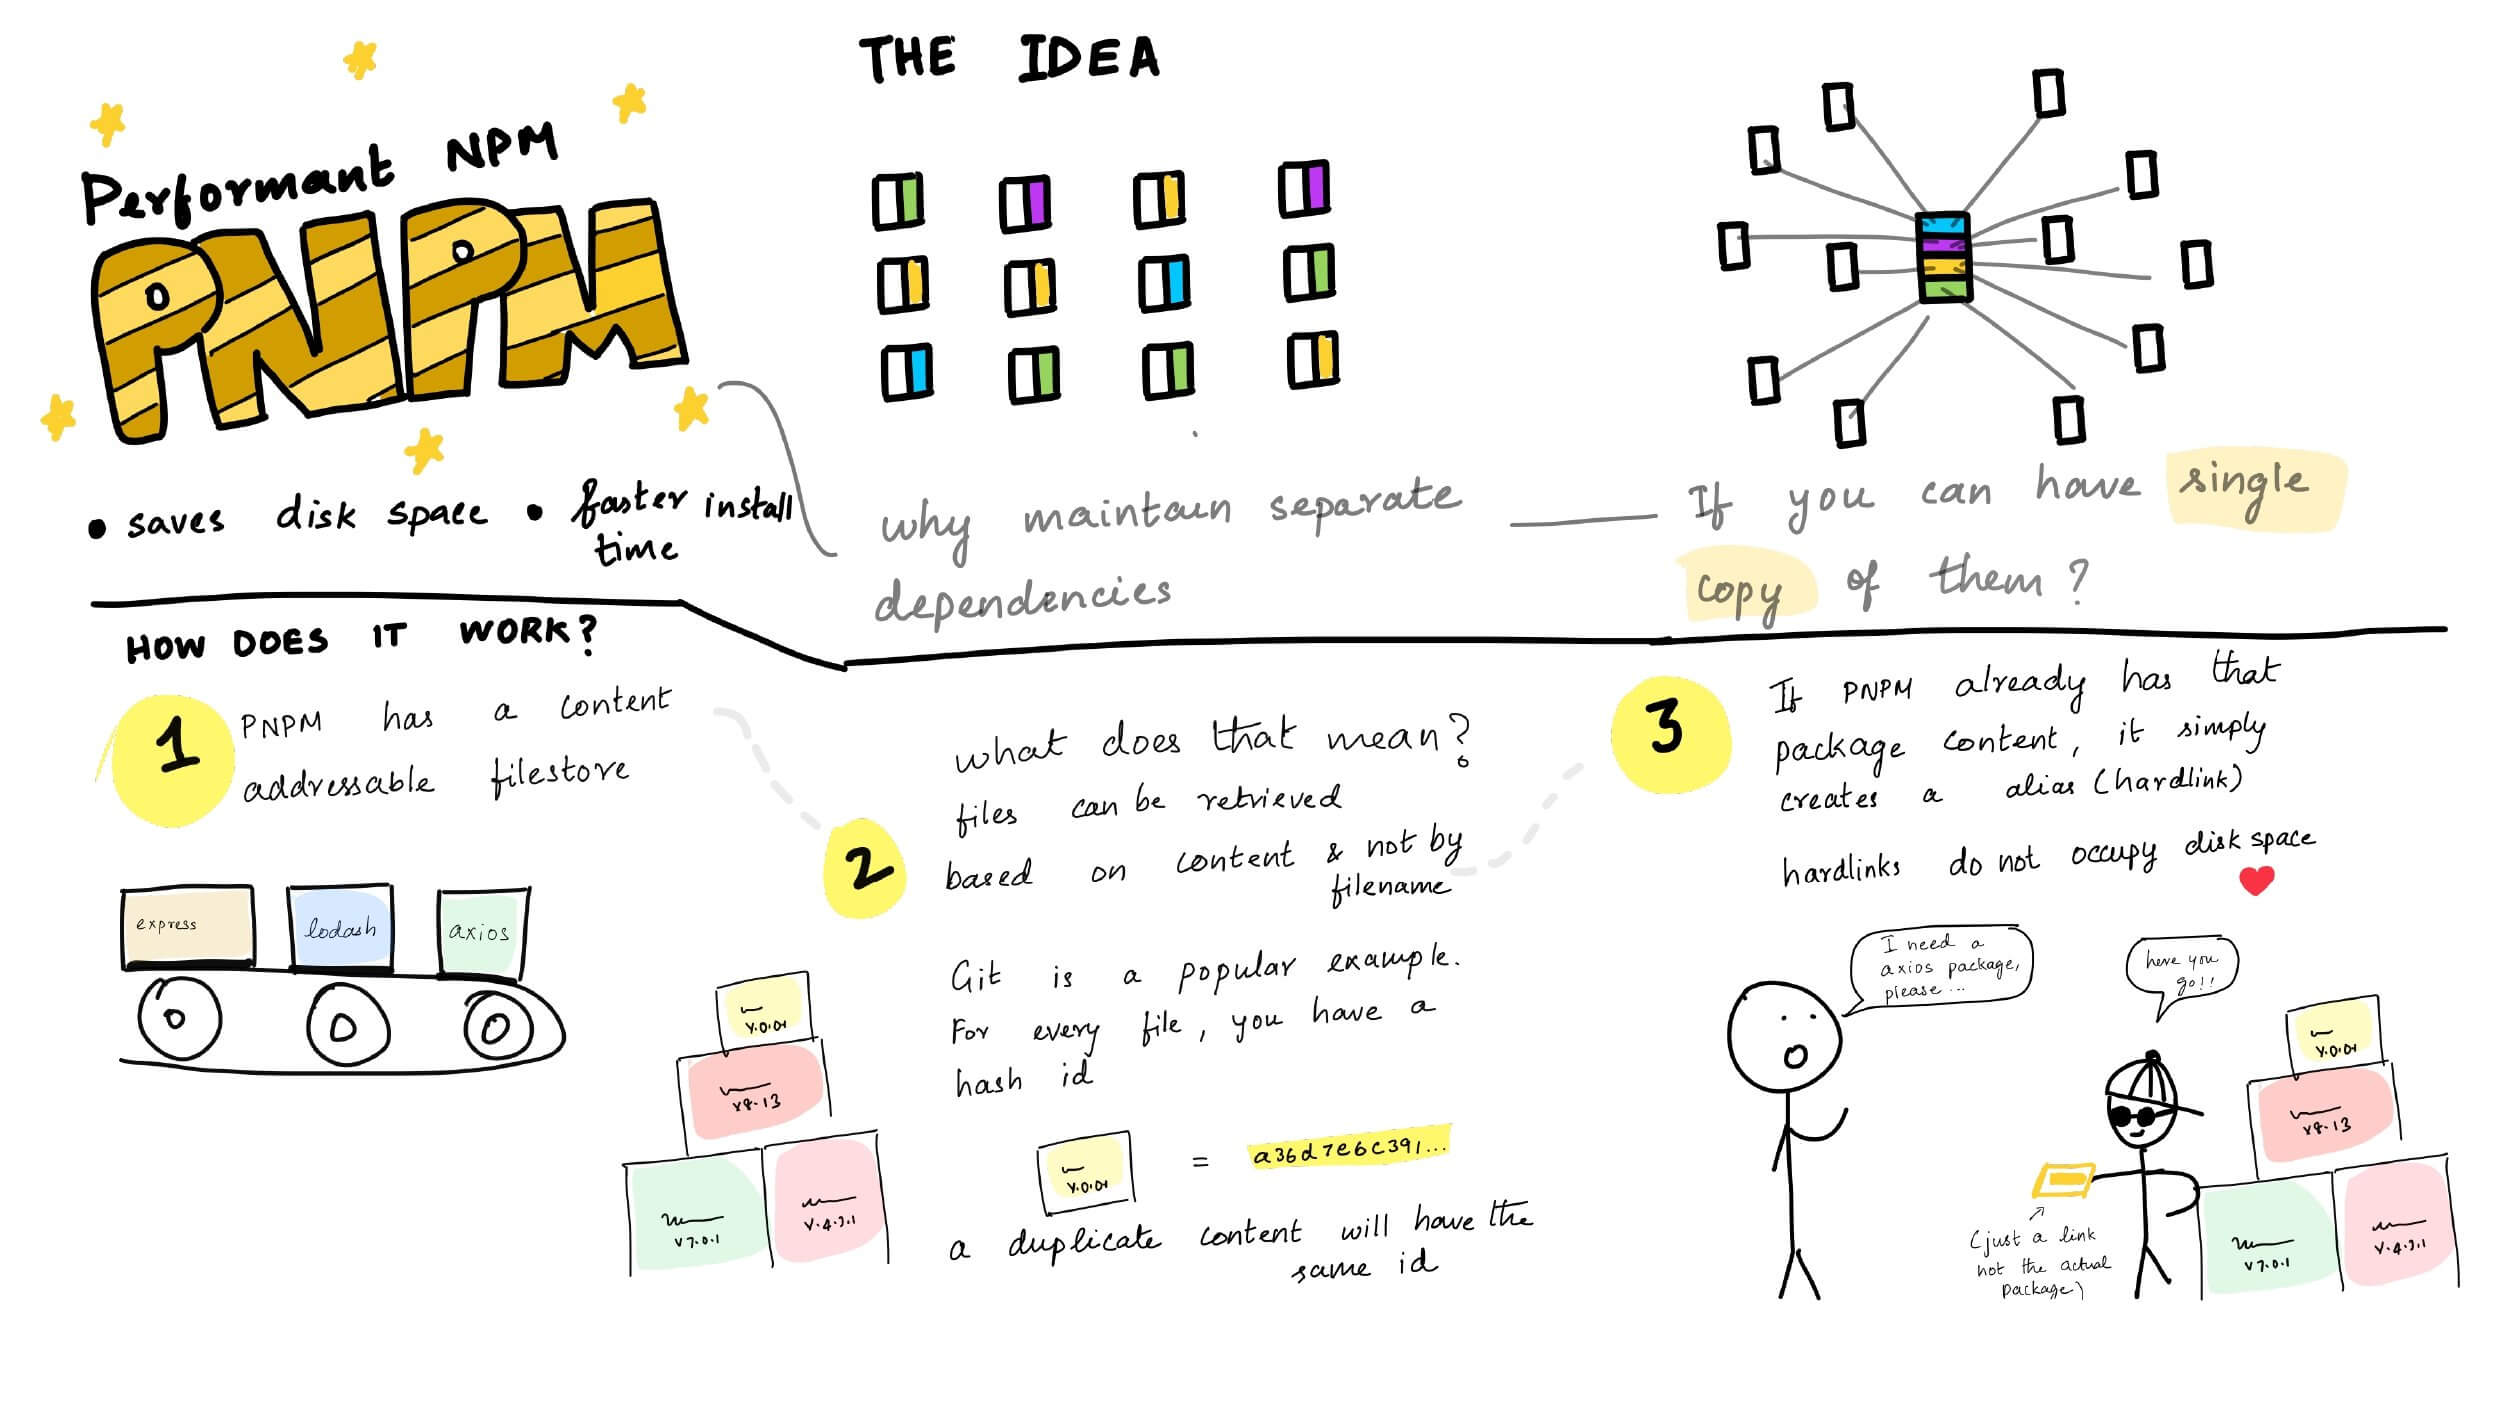 Performant NPM
PNPM
• saves disk space • faster install
time
THE IDEA
why maintain separate
dependencies
If you can have single
copy of them?
HOW DOES IT WORK?
1
PNPM has a content
addressable filestore
express
lodash
axios
v.0.01
v8.13
v7.0.1
v.4.3.1
2
what does that mean?
files can be retrieved
based on content & not by
filename
Git is a popular example.
For every file, you have a
hash id
v.0.01
= a36d7e6c391...
a duplicate content will have the
same id
3
If PNPM already has that
package content, it simply
creates a alias (hardlink)
hardlinks do not occupy disk space
I need a
axios package,
please...
here you
go!!
(just a link
not the actual
package)
v.0.01
v8.13
v7.0.1
v.4.3.1